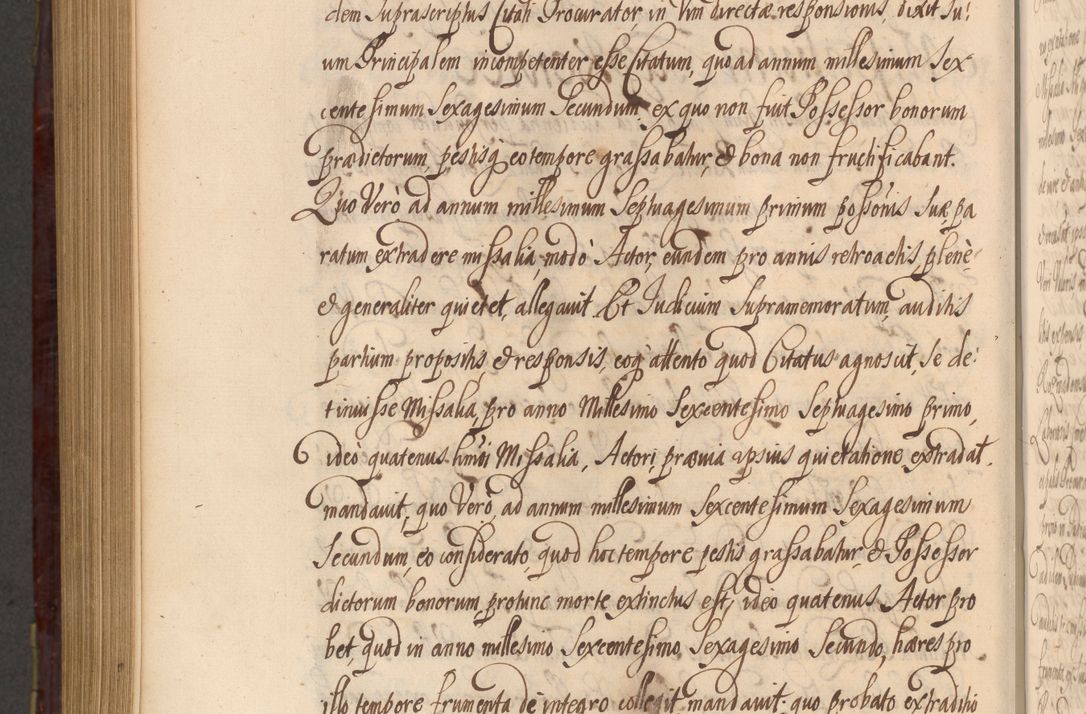 dem Suprascriptus Citati Procurator, in Vim directæ responsionis, dixit Su:
um Principalem incompetenter esse Citatum, quo ad annum millesimum Sex
centesimum Sexagesimum Secundum, ex quo non fuit Possessor bonorum
prædictorum, pestisq̃ eo tempore grassabatur, & bona non fructificabant.
Quo Verò ad annum millesimum Septuagesimum primum possõnis Suæ, pa
ratum extradere missalia, modò Actor, eundem pro annis retroactis, plenè
& generaliter quietet, allegavit. Et Judicium Supramemoratum, auditis
partium propositis, & responsis, eoq̃ attento quod Citatus agnoscit, Se de:
tinuisse Missalia, pro anno Millesimo Sexcentesimo Septuagesimo primo,
ideò quatenus Missalia, Actori, prævia ipsius quietatione, extradat.
mandavit, quo Verò, ad annum millesimum Sexcentesimum Sexagesimum
Secundum, eo considerato, quod hoc tempore pestis grassabatur, & Possessor
dictorum bonorum, protunc morte extinctus est, ideò quatenus Actor pro
bet, quod in anno millesimo Sexcentesimo, Sexagesimo Secundo, hæres pro
illo tempore frumenta de integro collegit, mandavit; quo probato extraditio